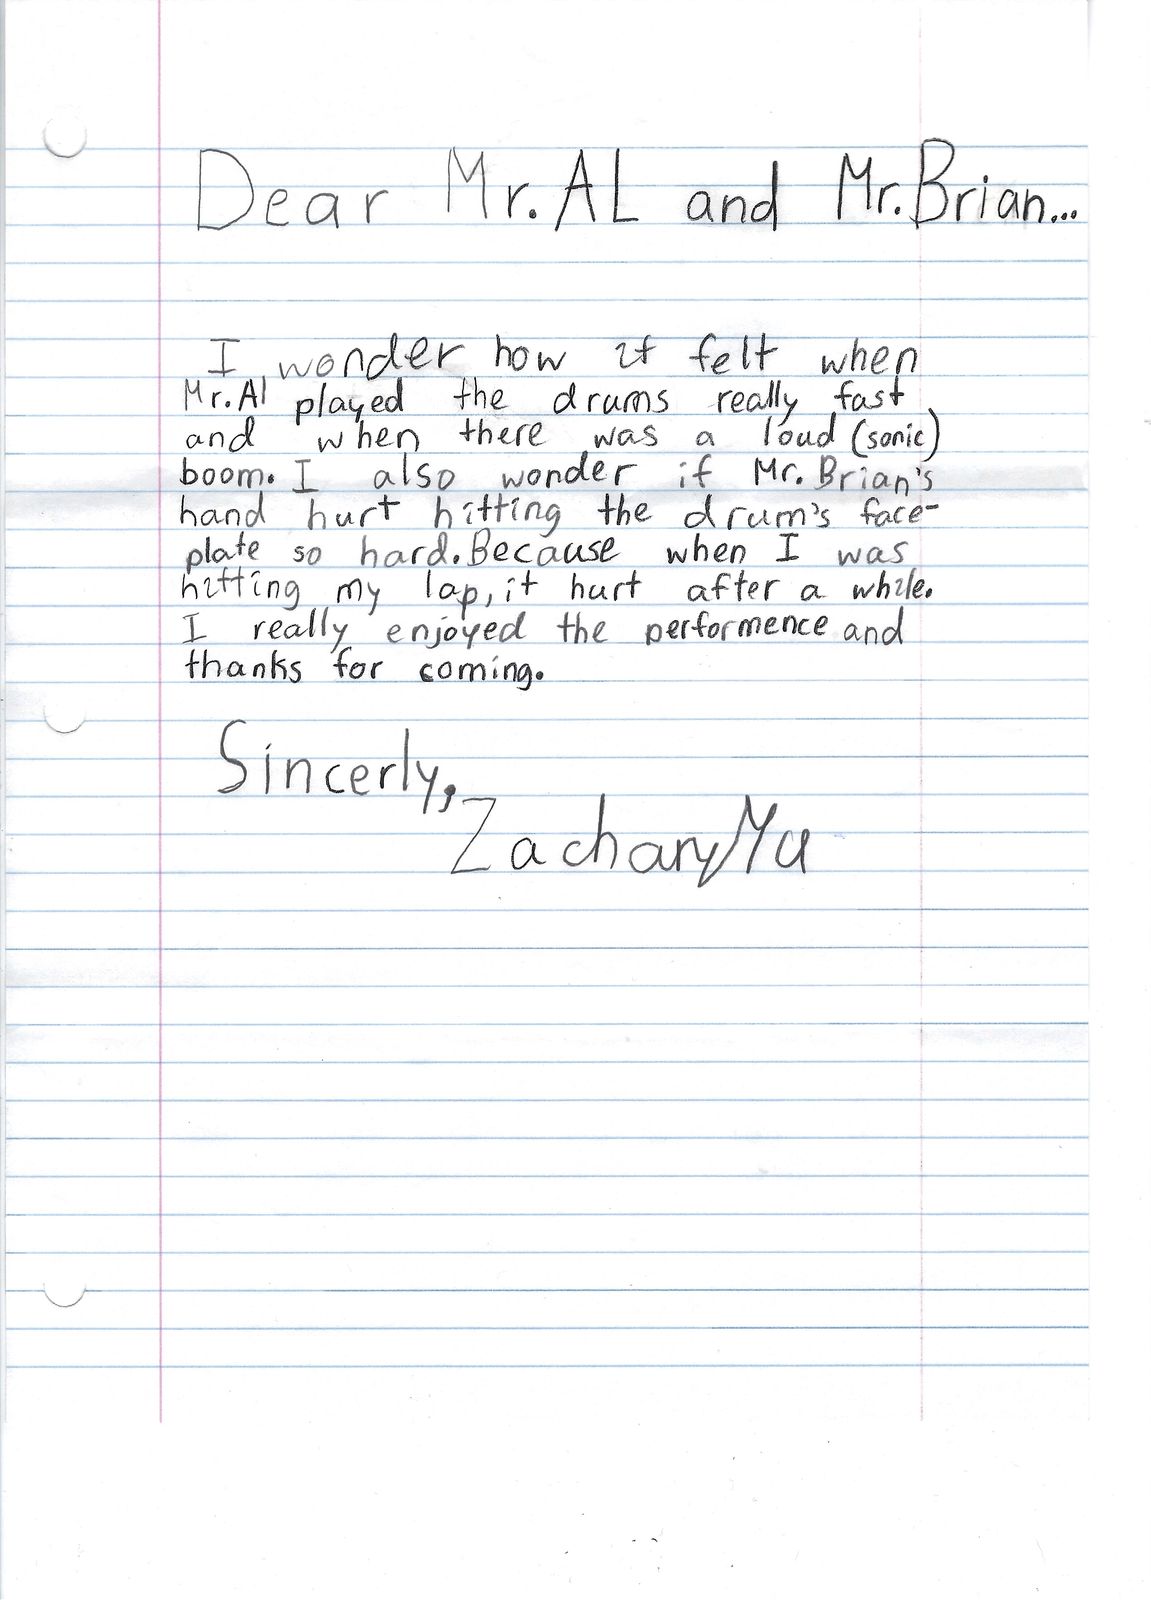 Dear Mr. AL and Mr. Brian...
I wonder how it felt when
Mr. Al played the drums really fast
and when there was a loud (sonic)
boom. I also wonder if Mr. Brian's
hand hurt hitting the drum's face-
plate so hard. Because when I was
hitting my lap, it hurt after a while.
I really enjoyed the performence and
thanks for coming.
Sincerly,
Zachary Ma